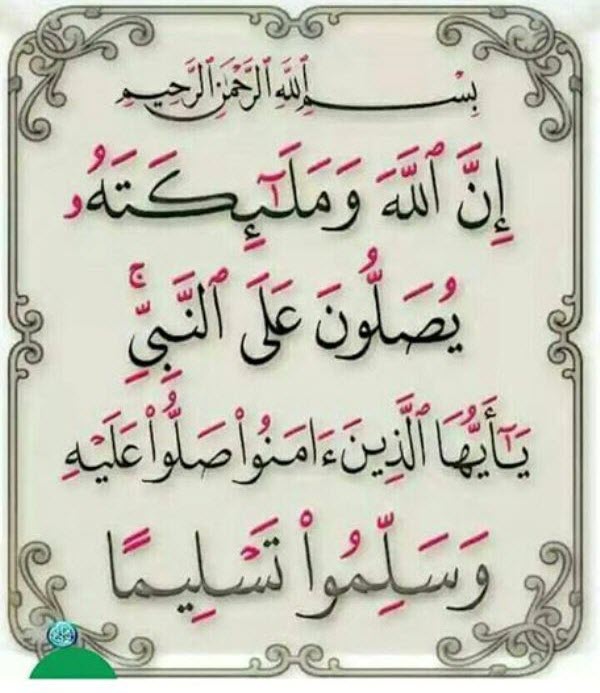 بِسْمِ ٱللَّهِ ٱلرَّحْمَٰنِ ٱلرَّحِيمِ
إِنَّ ٱللَّهَ وَمَلَٰٓئِكَتَهُۥ
يُصَلُّونَ عَلَى ٱلنَّبِىِّۚ
يَٰٓأَيُّهَا ٱلَّذِينَ ءَامَنُوا۟ صَلُّوا۟ عَلَيْهِ
وَسَلِّمُوا۟ تَسْلِيمًا